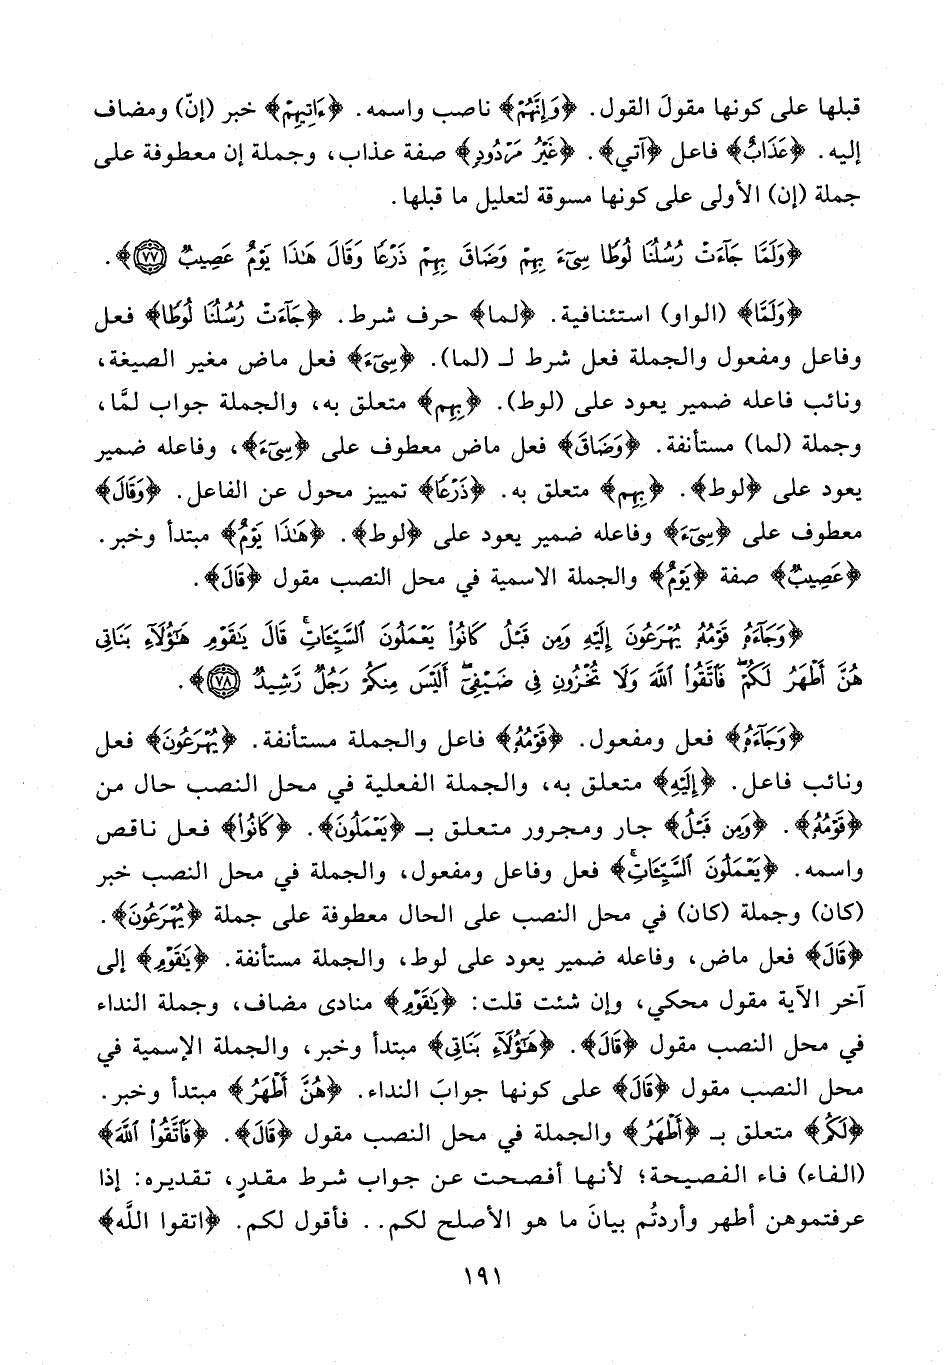 قبلها على كونها مقولَ القول. ﴿وَإِنَّهُمْ﴾ ناصب واسمه. ﴿ءَاتِيهِمْ﴾ خبر (إنّ) ومضاف
إليه. ﴿عَذَابٌ﴾ فاعل ﴿آتي﴾. ﴿غَيْرُ مَرْدُودٍ﴾ صفة عذاب، وجملة إن معطوفة على
جملة (إن) الأولى على كونها مسوقة لتعليل ما قبلها.
﴿وَلَمَّا جَآءَتْ رُسُلُنَا لُوطًا سِىٓءَ بِهِمْ وَضَاقَ بِهِمْ ذَرْعًا وَقَالَ هَـٰذَا يَوْمٌ عَصِيبٌ ٧٧﴾.
﴿وَلَمَّا﴾ (الواو) استئنافية. ﴿لما﴾ حرف شرط. ﴿جَآءَتْ رُسُلُنَا لُوطًا﴾ فعل
وفاعل ومفعول والجملة فعل شرط لـ (لما). ﴿سِىٓءَ﴾ فعل ماض مغير الصيغة،
ونائب فاعله ضمير يعود على (لوط). ﴿بِهِم﴾ متعلق به، والجملة جواب لمَّا،
وجملة (لما) مستأنفة. ﴿وَضَاقَ﴾ فعل ماض معطوف على ﴿سِىٓءَ﴾، وفاعله ضمير
يعود على ﴿لوط﴾. ﴿بِهِم﴾ متعلق به. ﴿ذَرْعًا﴾ تمييز محول عن الفاعل. ﴿وَقَالَ﴾
معطوف على ﴿سِىٓءَ﴾ وفاعله ضمير يعود على ﴿لوط﴾. ﴿هَـٰذَا يَوْمٌ﴾ مبتدأ وخبر.
﴿عَصِيبٌ﴾ صفة ﴿يَوْمٌ﴾ والجملة الاسمية في محل النصب مقول ﴿قَالَ﴾.
﴿وَجَآءَهُۥ قَوْمُهُۥ يُهْرَعُونَ إِلَيْهِ وَمِن قَبْلُ كَانُوا۟ يَعْمَلُونَ ٱلسَّيِّـَٔاتِۚ قَالَ يَـٰقَوْمِ هَـٰٓؤُلَآءِ بَنَاتِى
هُنَّ أَطْهَرُ لَكُمْۖ فَٱتَّقُوا۟ ٱللَّهَ وَلَا تُخْزُونِ فِى ضَيْفِىٓۖ أَلَيْسَ مِنكُمْ رَجُلٌ رَّشِيدٌ ٧٨﴾.
﴿وَجَآءَهُۥ﴾ فعل ومفعول. ﴿قَوْمُهُۥ﴾ فاعل والجملة مستأنفة. ﴿يُهْرَعُونَ﴾ فعل
ونائب فاعل. ﴿إِلَيْهِ﴾ متعلق به، والجملة الفعلية في محل النصب حال من
﴿قَوْمُهُۥ﴾. ﴿وَمِن قَبْلُ﴾ جار ومجرور متعلق بـ ﴿يَعْمَلُونَ﴾. ﴿كَانُوا۟﴾ فعل ناقص
واسمه. ﴿يَعْمَلُونَ ٱلسَّيِّـَٔاتِۚ﴾ فعل وفاعل ومفعول، والجملة في محل النصب خبر
(كان) وجملة (كان) في محل النصب على الحال معطوفة على جملة ﴿يُهْرَعُونَ﴾.
﴿قَالَ﴾ فعل ماض، وفاعله ضمير يعود على لوط، والجملة مستأنفة. ﴿يَـٰقَوْمِ﴾ إلى
آخر الآية مقول محكي، وإن شئت قلت: ﴿يَـٰقَوْمِ﴾ منادى مضاف، وجملة النداء
في محل النصب مقول ﴿قَالَ﴾. ﴿هَـٰٓؤُلَآءِ بَنَاتِى﴾ مبتدأ وخبر، والجملة الإسمية في
محل النصب مقول ﴿قَالَ﴾ على كونها جوابَ النداء. ﴿هُنَّ أَطْهَرُ﴾ مبتدأ وخبر.
﴿لَكُمْ﴾ متعلق بـ ﴿أَطْهَرُ﴾ والجملة في محل النصب مقول ﴿قَالَ﴾. ﴿فَٱتَّقُوا۟ ٱللَّهَ﴾
(الفاء) فاء الفصيحة؛ لأنها أفصحت عن جواب شرط مقدرٍ، تقديره: إذا
عرفتموهن أطهر وأردتُم بيانَ ما هو الأصلح لكم.. فأقول لكم. ﴿اتقوا اللَّه﴾
١٩١